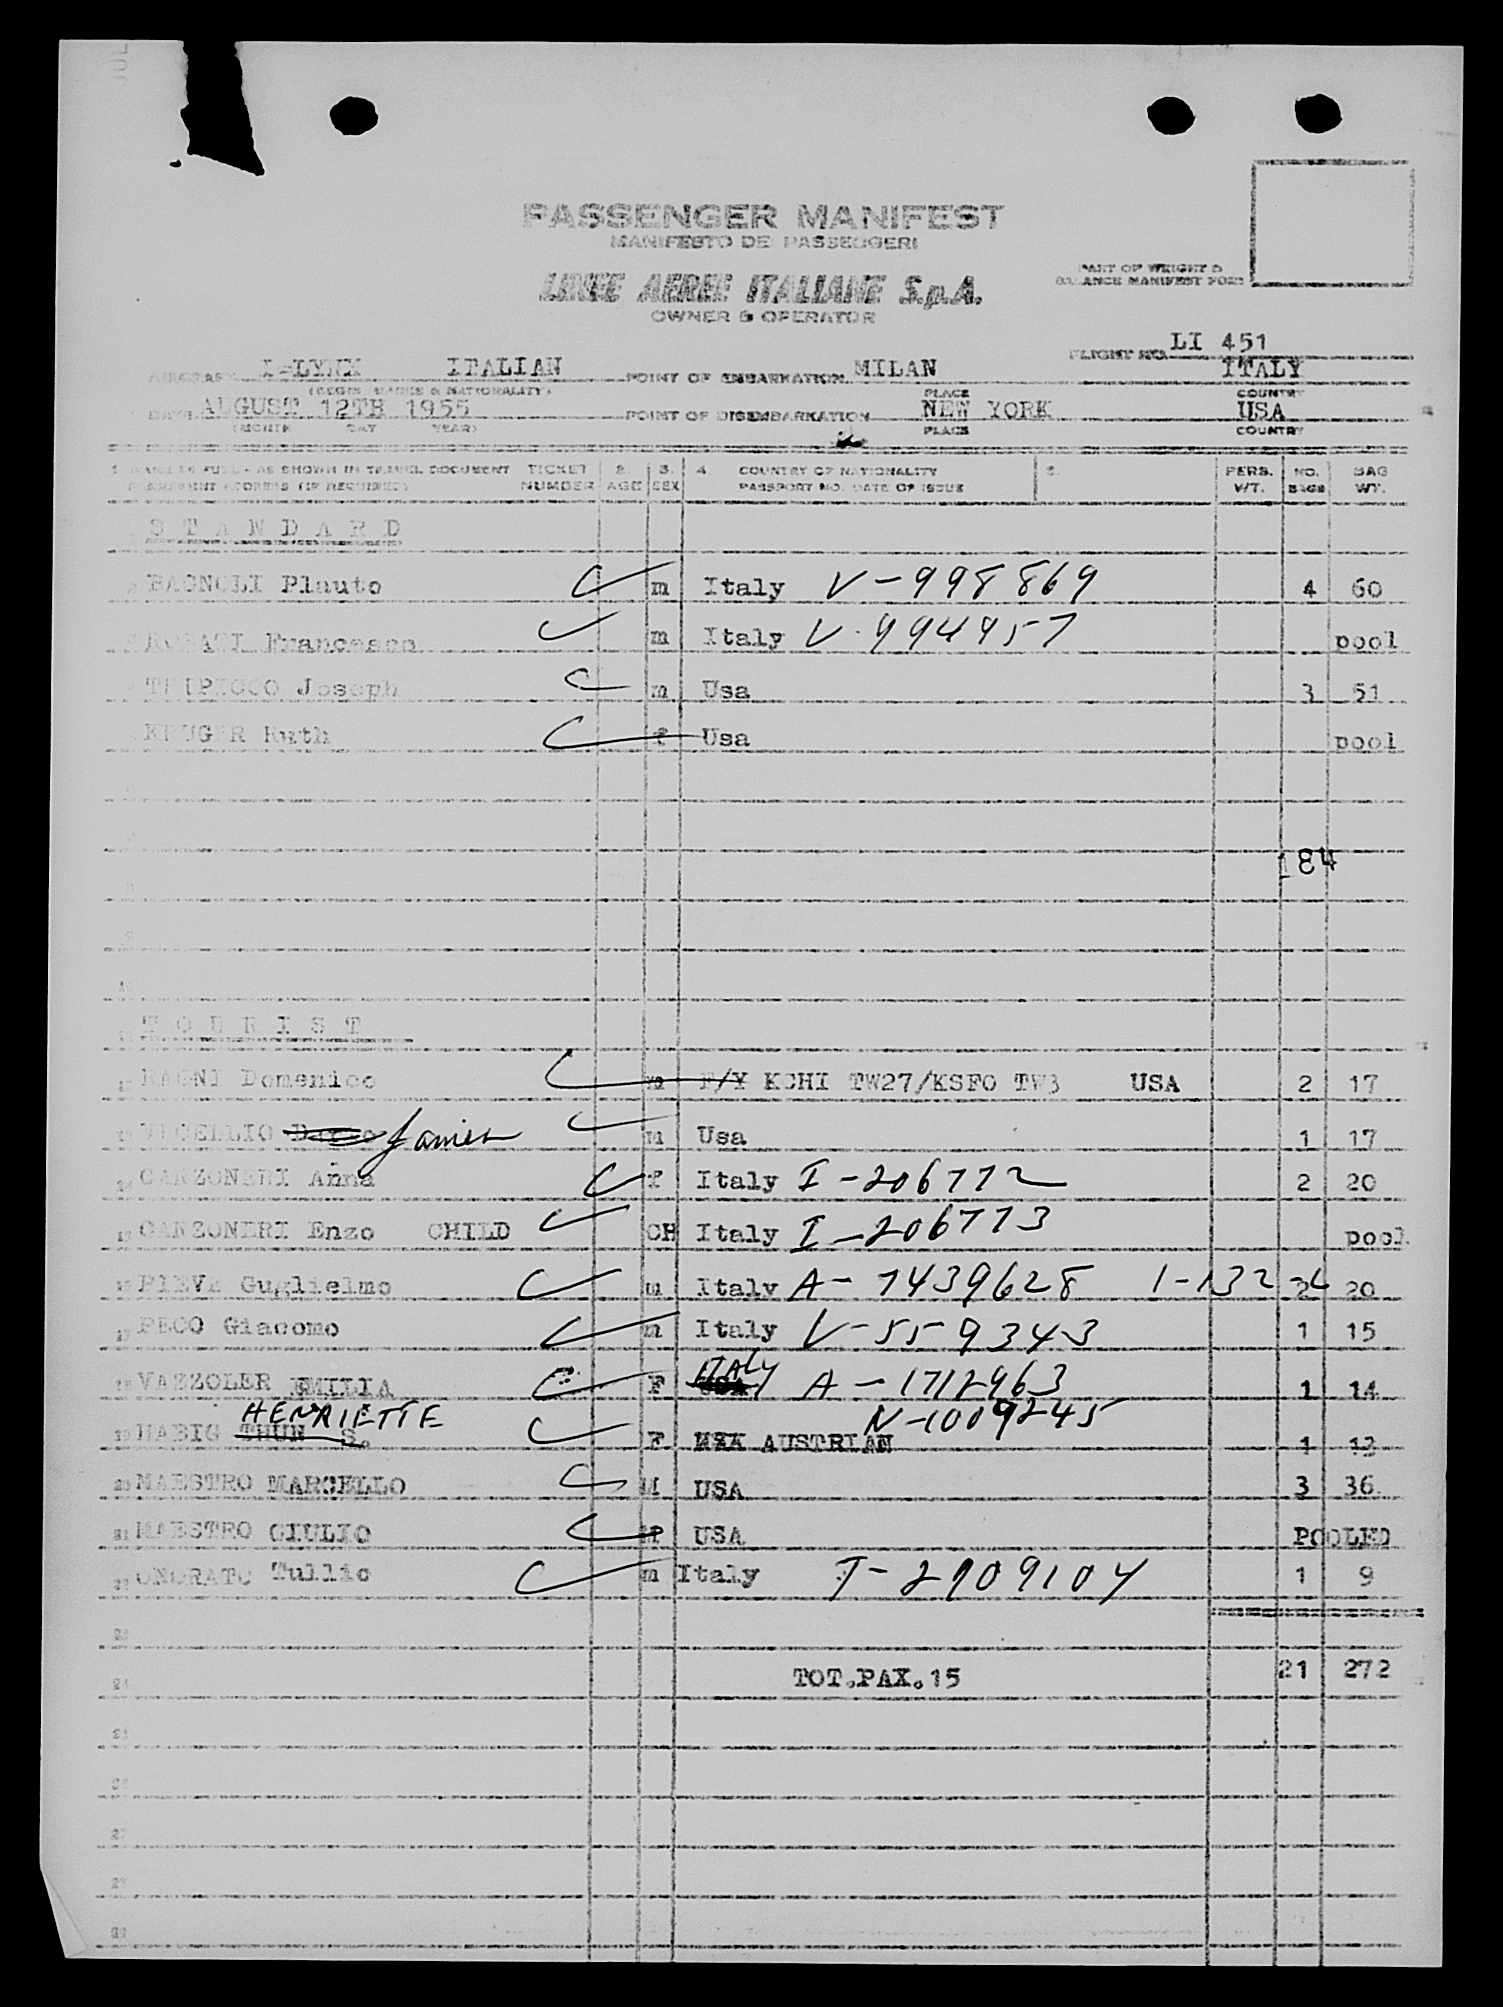 PASSENGER MANIFEST
MANIFESTO DEI PASSEGGERI
LINEE AEREE ITALIANE S.p.A.
OWNER & OPERATOR
PART OF WEIGHT &
BALANCE MANIFEST FORM
FLIGHT NO. LI 451
AIRCRAFT I-LYNX ITALIAN POINT OF EMBARKATION MILAN ITALY
(REGIS. MARKS & NATIONALITY) PLACE COUNTRY
DATE AUGUST 12TH 1955 POINT OF DISEMBARKATION NEW YORK USA
(MONTH DAY YEAR) PLACE COUNTRY
1. NAME IN FULL - AS SHOWN IN TRAVEL DOCUMENT TICKET 2. 3. 4. COUNTRY OF NATIONALITY 5. PERS. NO. BAG
PERMANENT ADDRESS (IF REQUIRED) NUMBER AGE SEX PASSPORT NO. DATE OF ISSUE WT. BAGS WT.
STANDARD
BAGNOLI Plauto m Italy V-998869 4 60
Francesco m Italy V-994957 pool
Joseph m Usa 3 51
KRUGER Ruth f Usa pool
184
TOURIST
RAGNI Domenico m F/Y KCHI TW27/KSFO TW3 USA 2 17
VECELLIO James m Usa 1 17
CANZONERI Anna f Italy I-206772 2 20
CANZONERI Enzo CHILD CH Italy I-206773 pool
PIEVE Guglielmo m Italy A-7439628 1-132 2 20
PECO Giacomo m Italy V-559343 1 15
VAZZOLER EMILIA F ITALY A-1712963 1 14
HENRIETTE N-1009245
HABIG THUN S. F AUSTRIAN 1 13
MAESTRO MARCELLO M USA 3 36
MAESTRO GIULIO M USA POOLED
ONORATO Tullio m Italy J-2909104 1 9
TOT.PAX.15 21 272